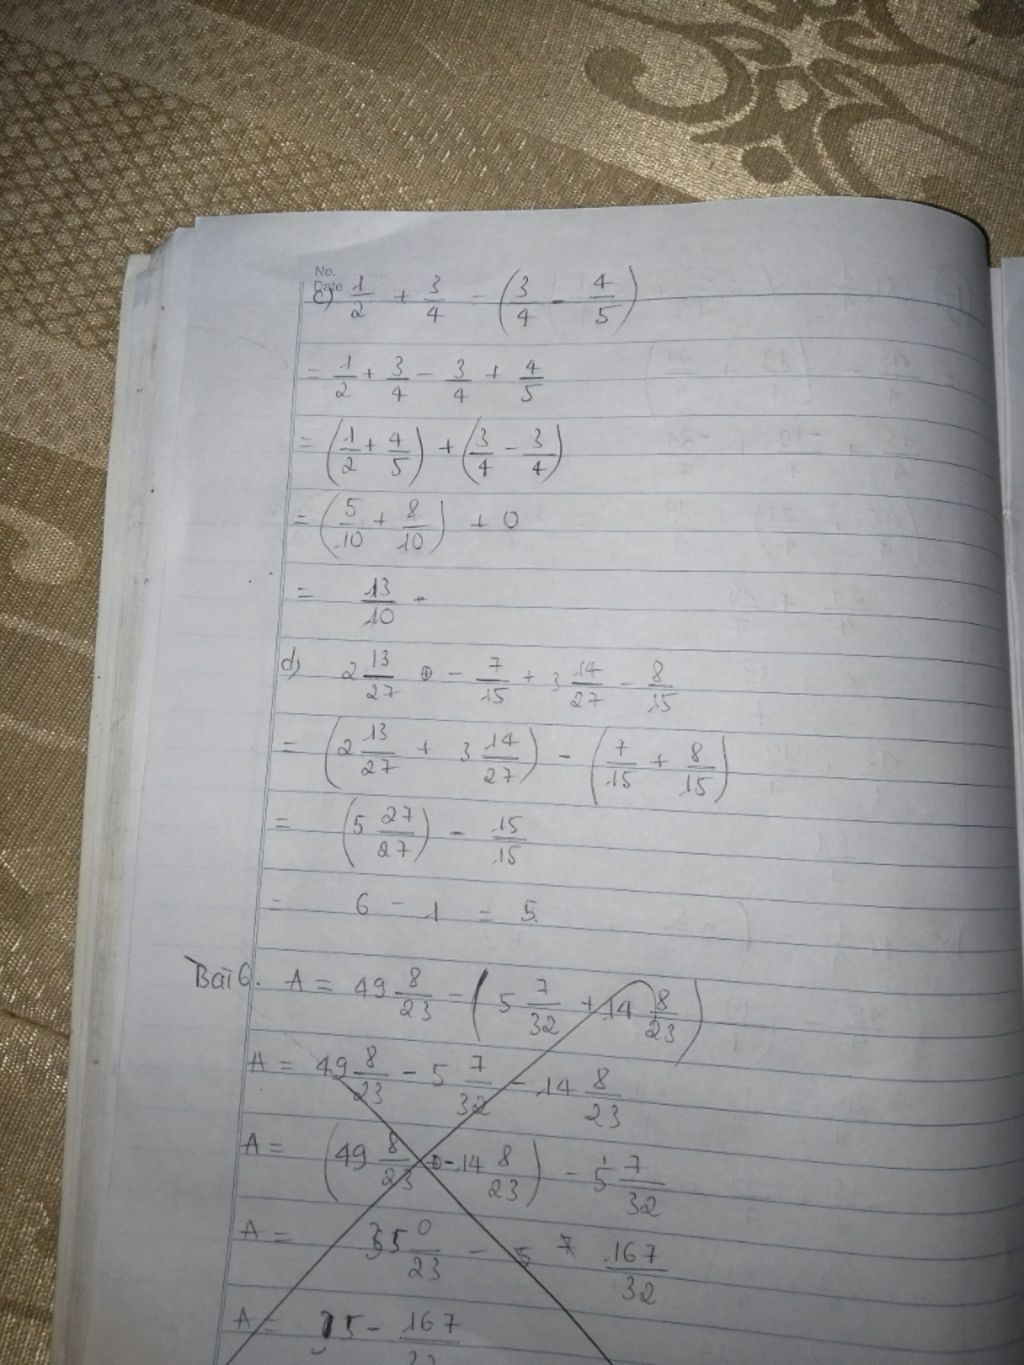 No.
Date
c) 1/2 + 3/4 - (3/4 - 4/5)
= 1/2 + 3/4 - 3/4 + 4/5
= (1/2 + 4/5) + (3/4 - 3/4)
= (5/10 + 8/10) + 0
= 13/10
d) 2 13/27 - 7/15 + 3 14/27 - 8/15
= (2 13/27 + 3 14/27) - (7/15 + 8/15)
= (5 27/27) - 15/15
= 6 - 1 = 5
Bài 6. A = 49 8/23 - (5 7/32 + 14 8/23)
A = 49 8/23 - 5 7/32 - 14 8/23
A = (49 8/23 - 14 8/23) - 5 7/32
A = 35 0/23 - 167/32
A = 35 - 167/32